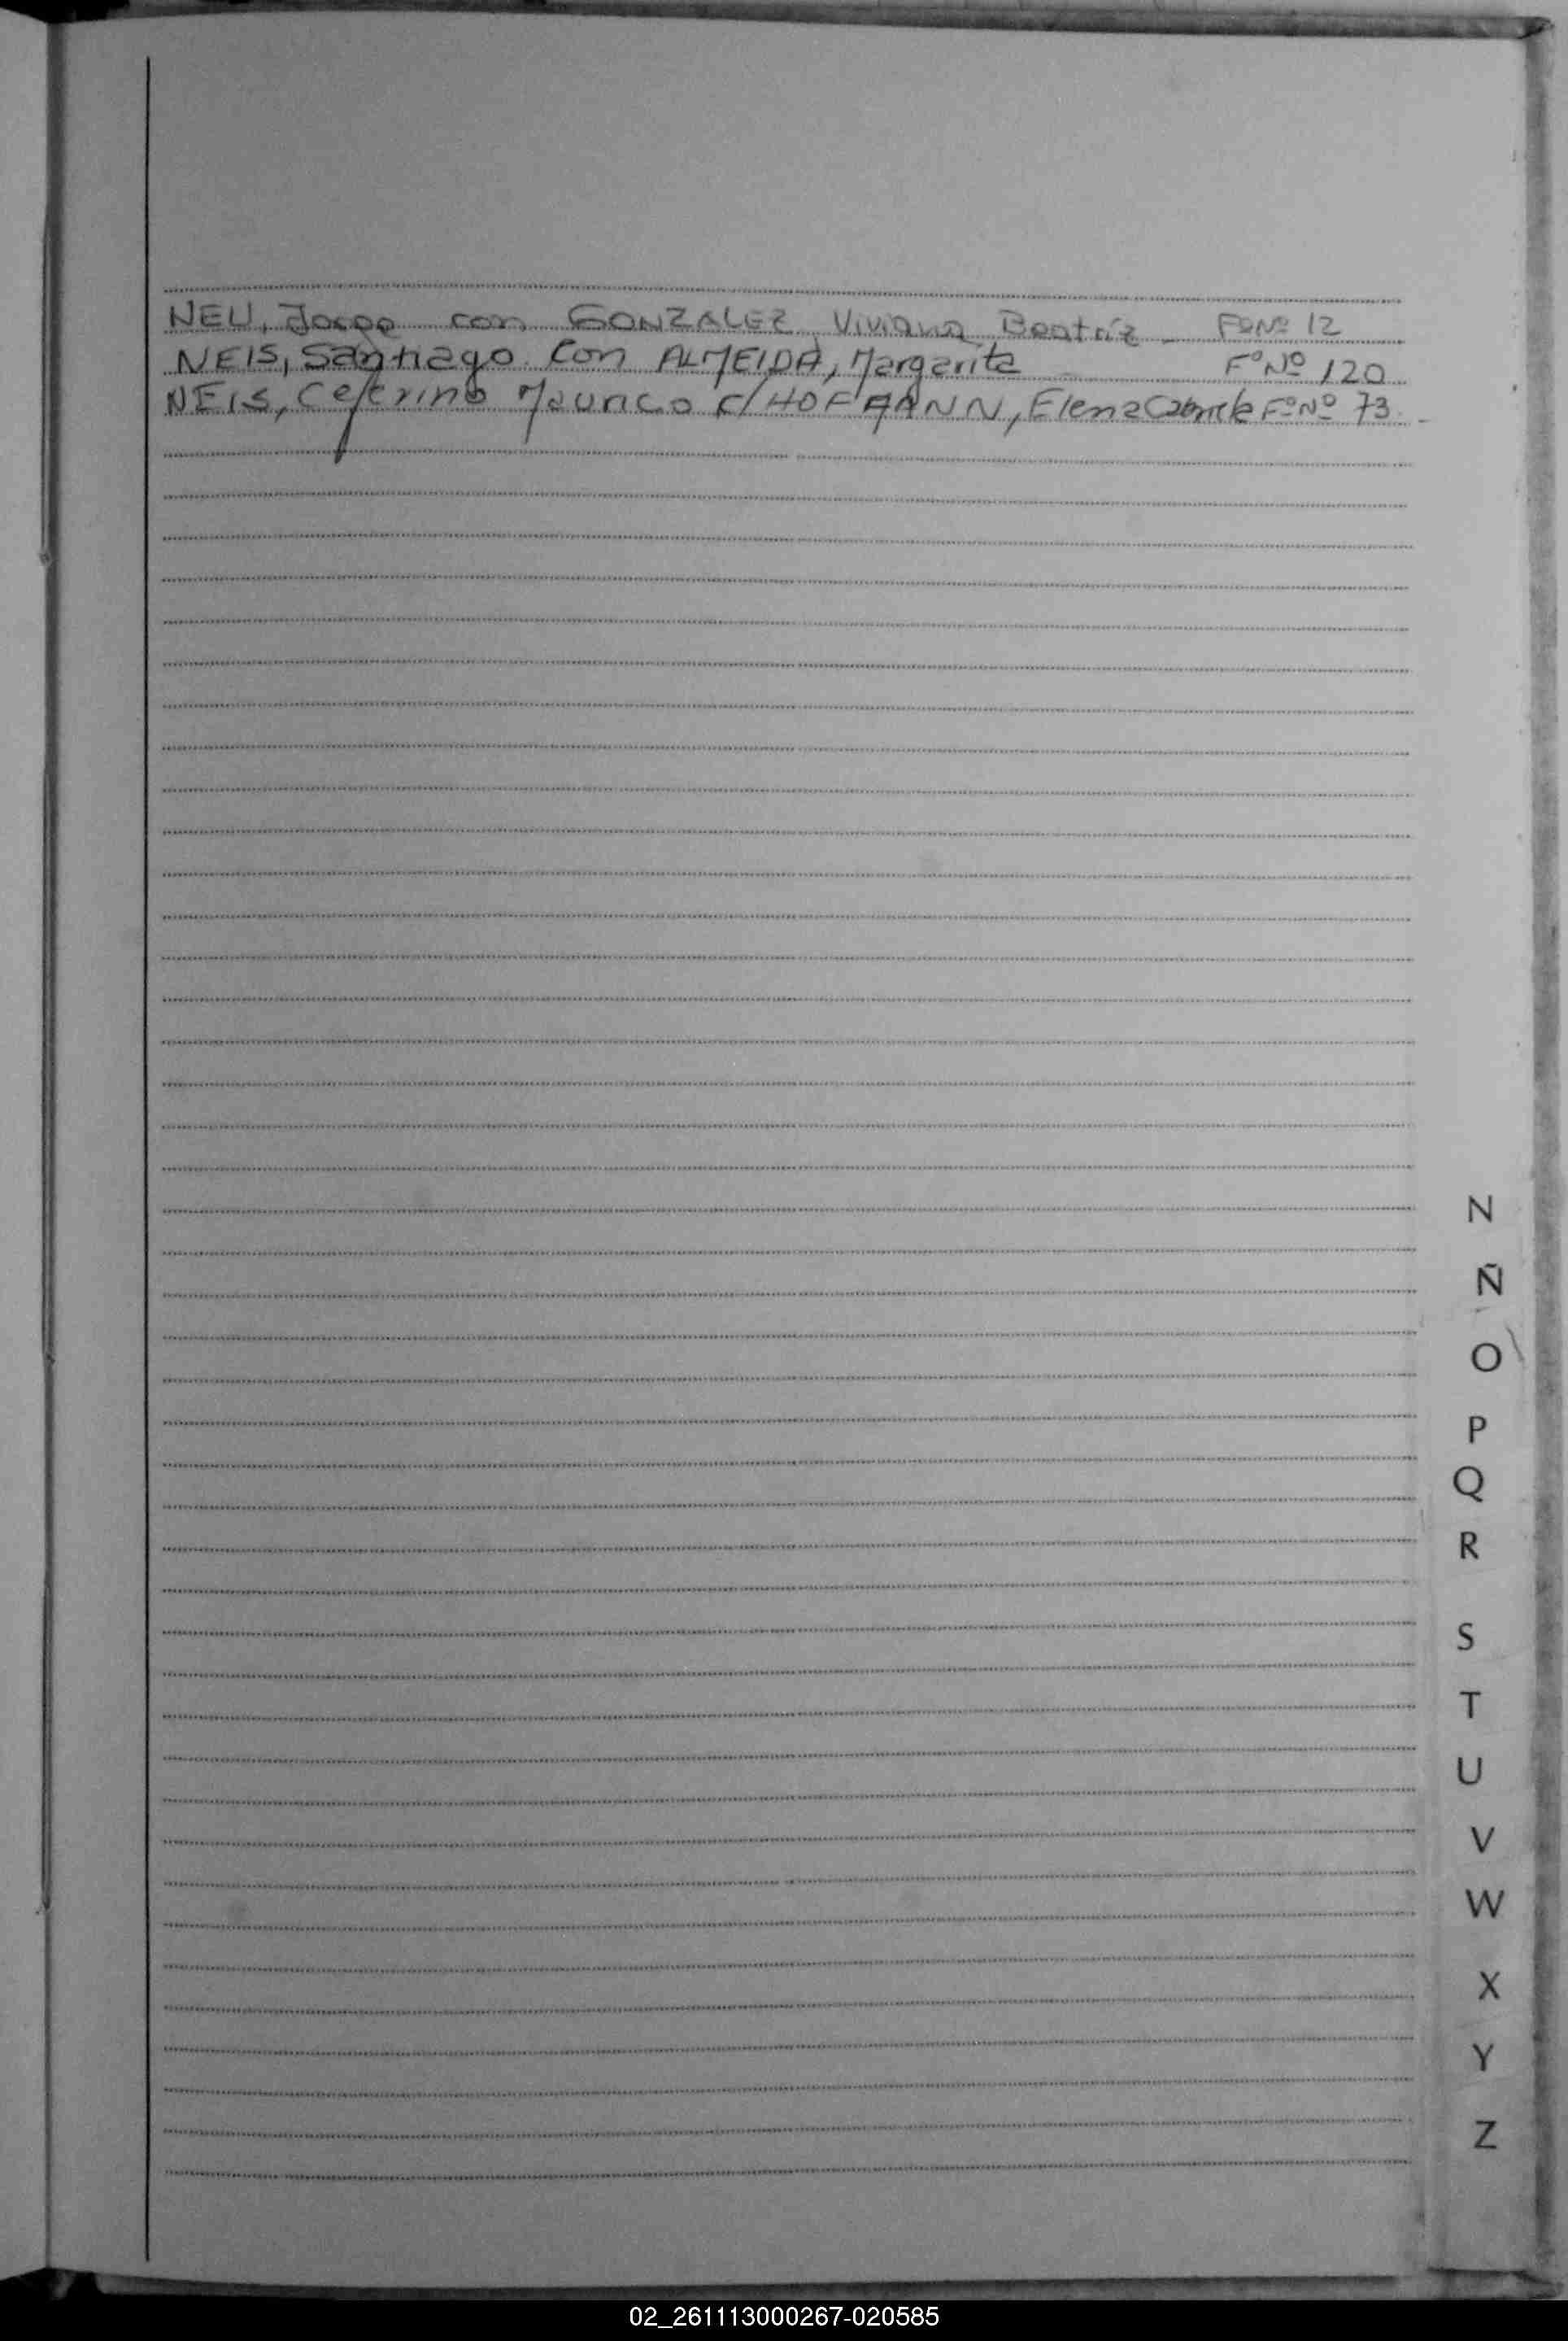 NEU, Jorge con GONZALEZ Viviana Beatríz - FºNº 12
NEIS, Santiago con ALMEIDA, Margarita - FºNº 120
NEIS, Ceferino Maurico c/ HOFMANN, Elena Gabriela FºNº 73.-
N
Ñ
O
P
Q
R
S
T
U
V
W
X
Y
Z
02_261113000267-020585